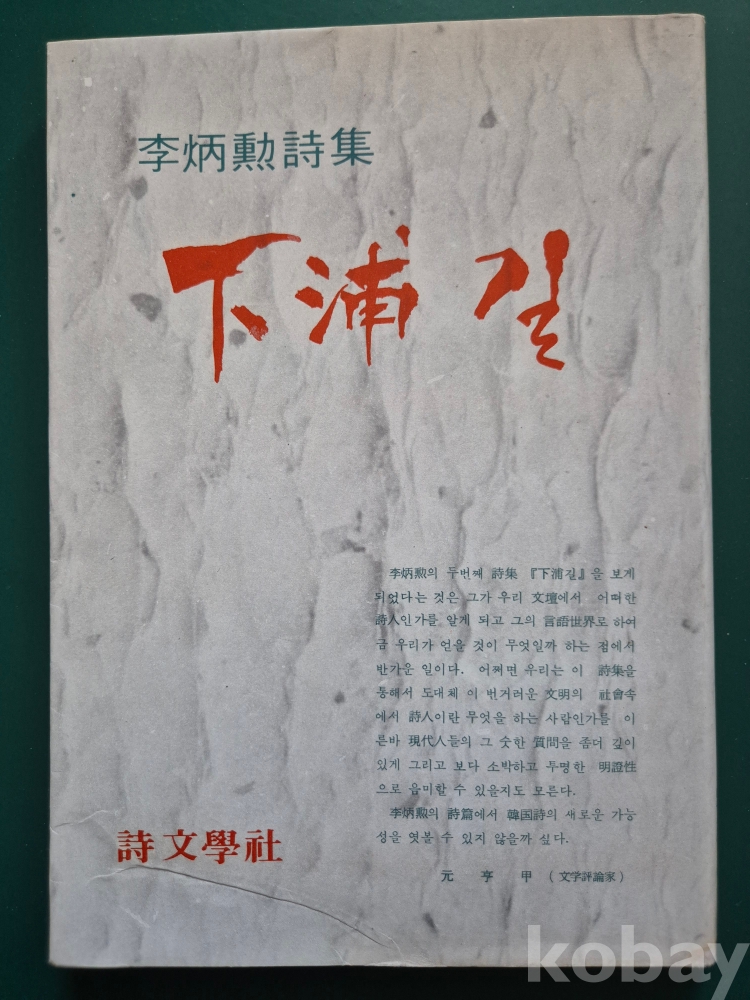 李炳勲詩集
下浦길
李炳勲의 두번째 詩集 『下浦길』을 보게
되었다는 것은 그가 우리 文壇에서 어떠한
詩人인가를 알게 되고 그의 言語世界로 하여
금 우리가 얻을 것이 무엇일까 하는 점에서
반가운 일이다. 어쩌면 우리는 이 詩集을
통해서 도대체 이 번거러운 文明의 社會속
에서 詩人이란 무엇을 하는 사람인가를 이
른바 現代人들의 그 숫한 質問을 좀더 깊이
있게 그리고 보다 소박하고 투명한 明證性
으로 음미할 수 있을지도 모른다.
李炳勲의 詩篇에서 韓国詩의 새로운 가능
성을 엿볼 수 있지 않을까 싶다.
元亨甲 (文学評論家)
詩文學社
kobay